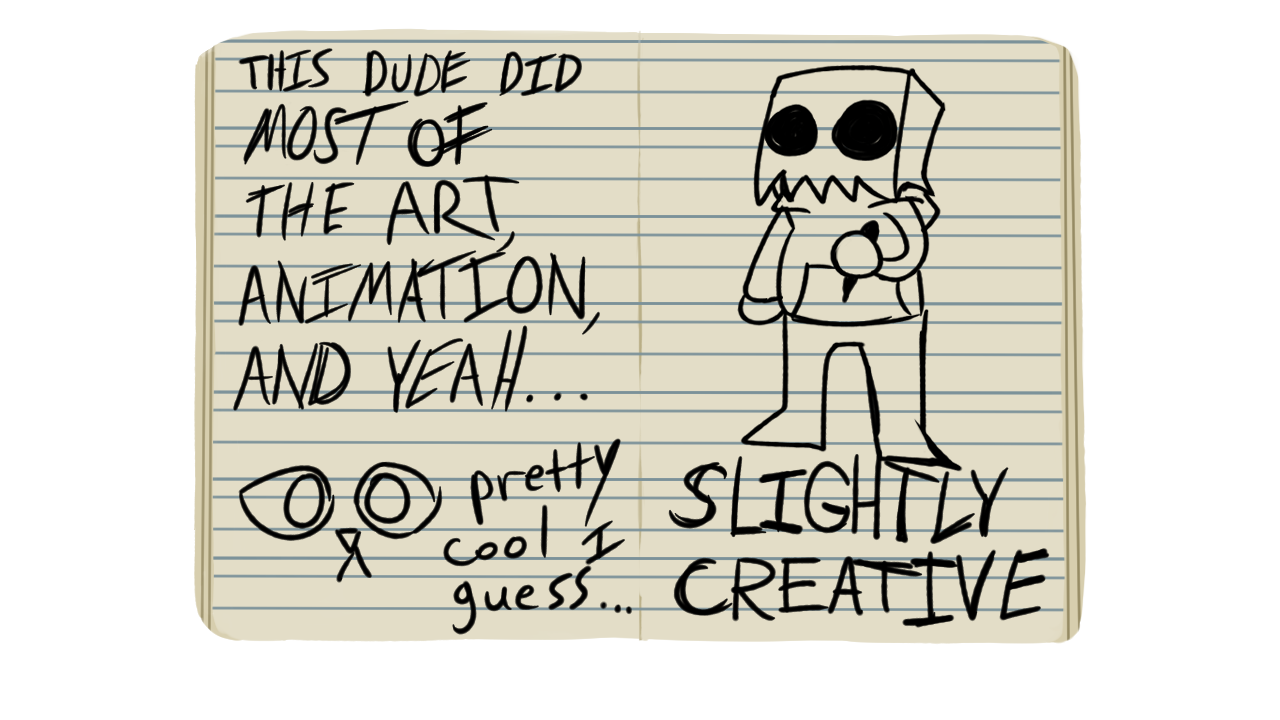 THIS DUDE DID
MOST OF
THE ART,
ANIMATION,
AND YEAH...
pretty
cool I
guess...
SLIGHTLY
CREATIVE